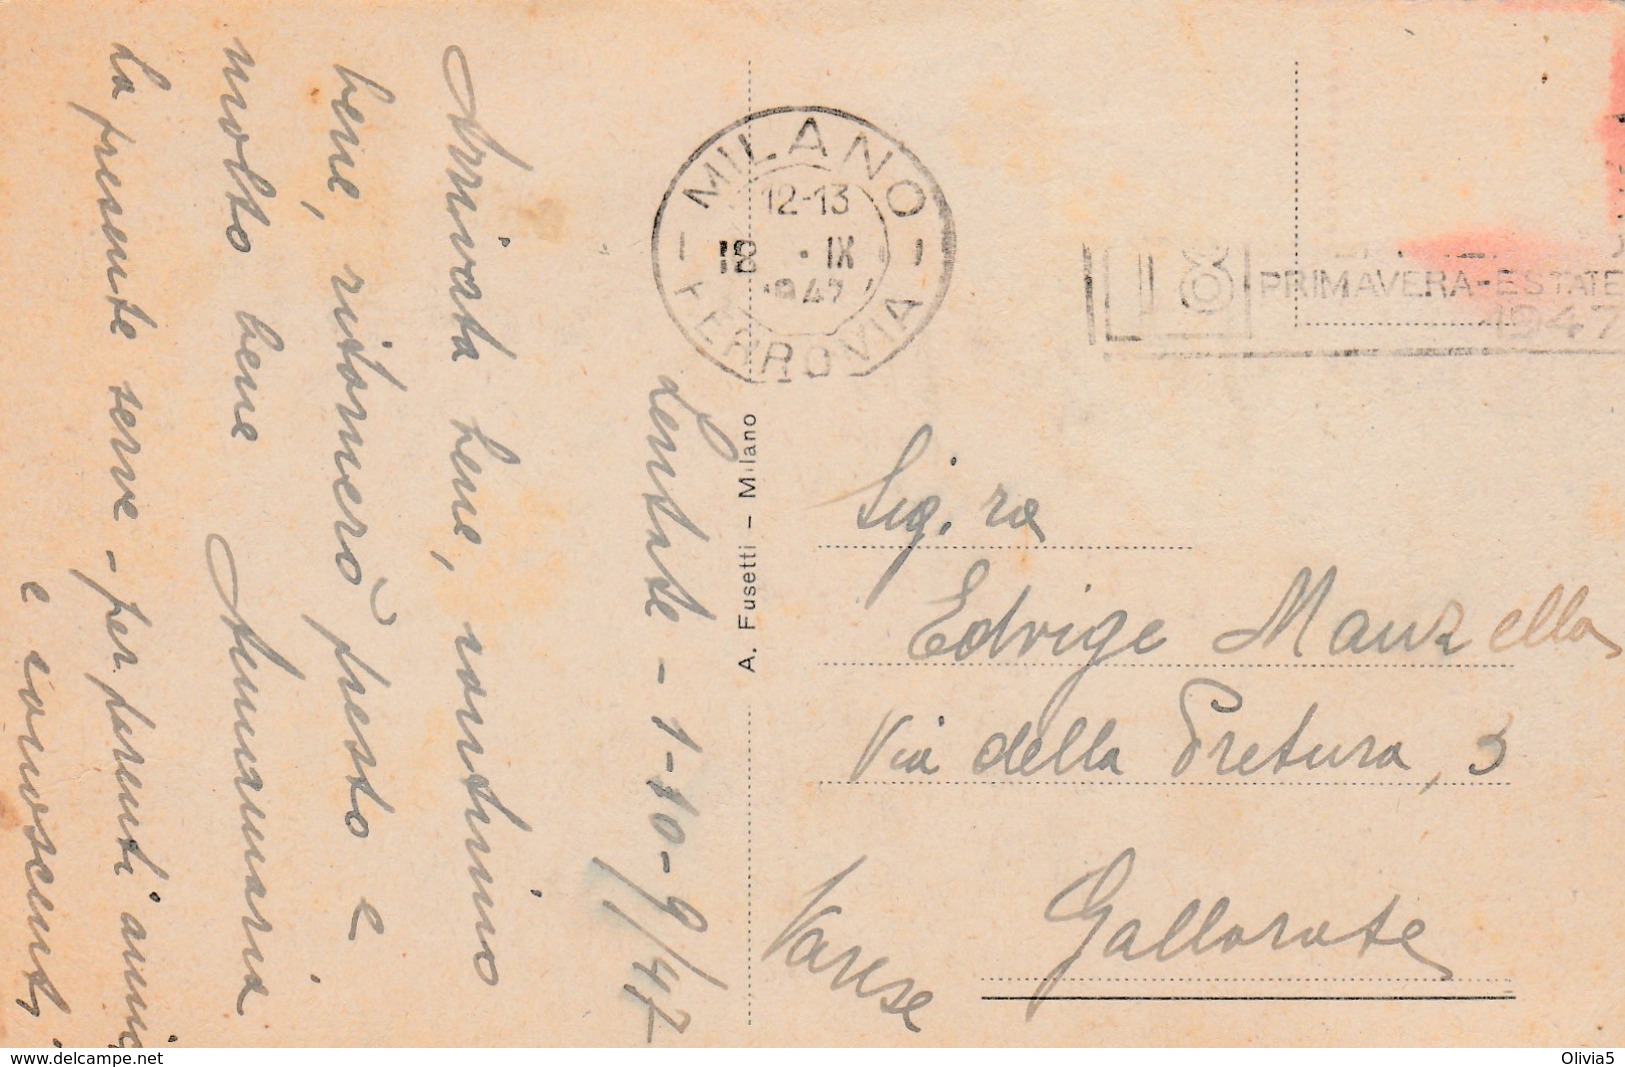 Lentate - 1-10-9/47
Arrivata bene, continuo
bene, ritornerò presto e
molto bene Annamaria
La presente serve - per parenti amici
e conoscenti
A. Fusetti - Milano
MILANO
12-13
18 · IX
1947
FERROVIA
PRIMAVERA-ESTATE
1947
Sig.ra
Edvige Manzella
Via della Pretura, 3
Gallarate
Varese
www.delcampe.net
Olivia5